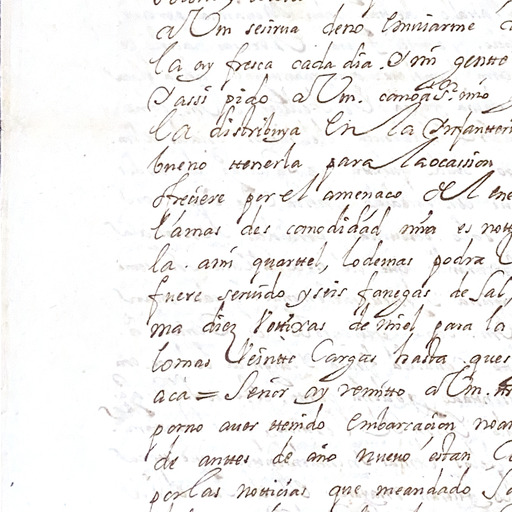 a Um se sirva de no Imviarme
la ay fresca cada dia. Y mi gentte
Y assi pido a Um. como a Sr. mio
la distribuya En la Ynfantteri
bueno ttenerla para la ocassion
ofreciere por el amenaco del ene
la mas des comodidad mia es nott
la. a mi quarttel, lo demas podra
fuere servido y seis fanegas de Sal,
ma diez bottixas de miel para la
lomas Veintte Cargas hasta. ques
aca = Señor ay remitto a Um.
por no aver ttenido Embarcacion no
de anttes de año nuevo estan
por las notticias que me an dado